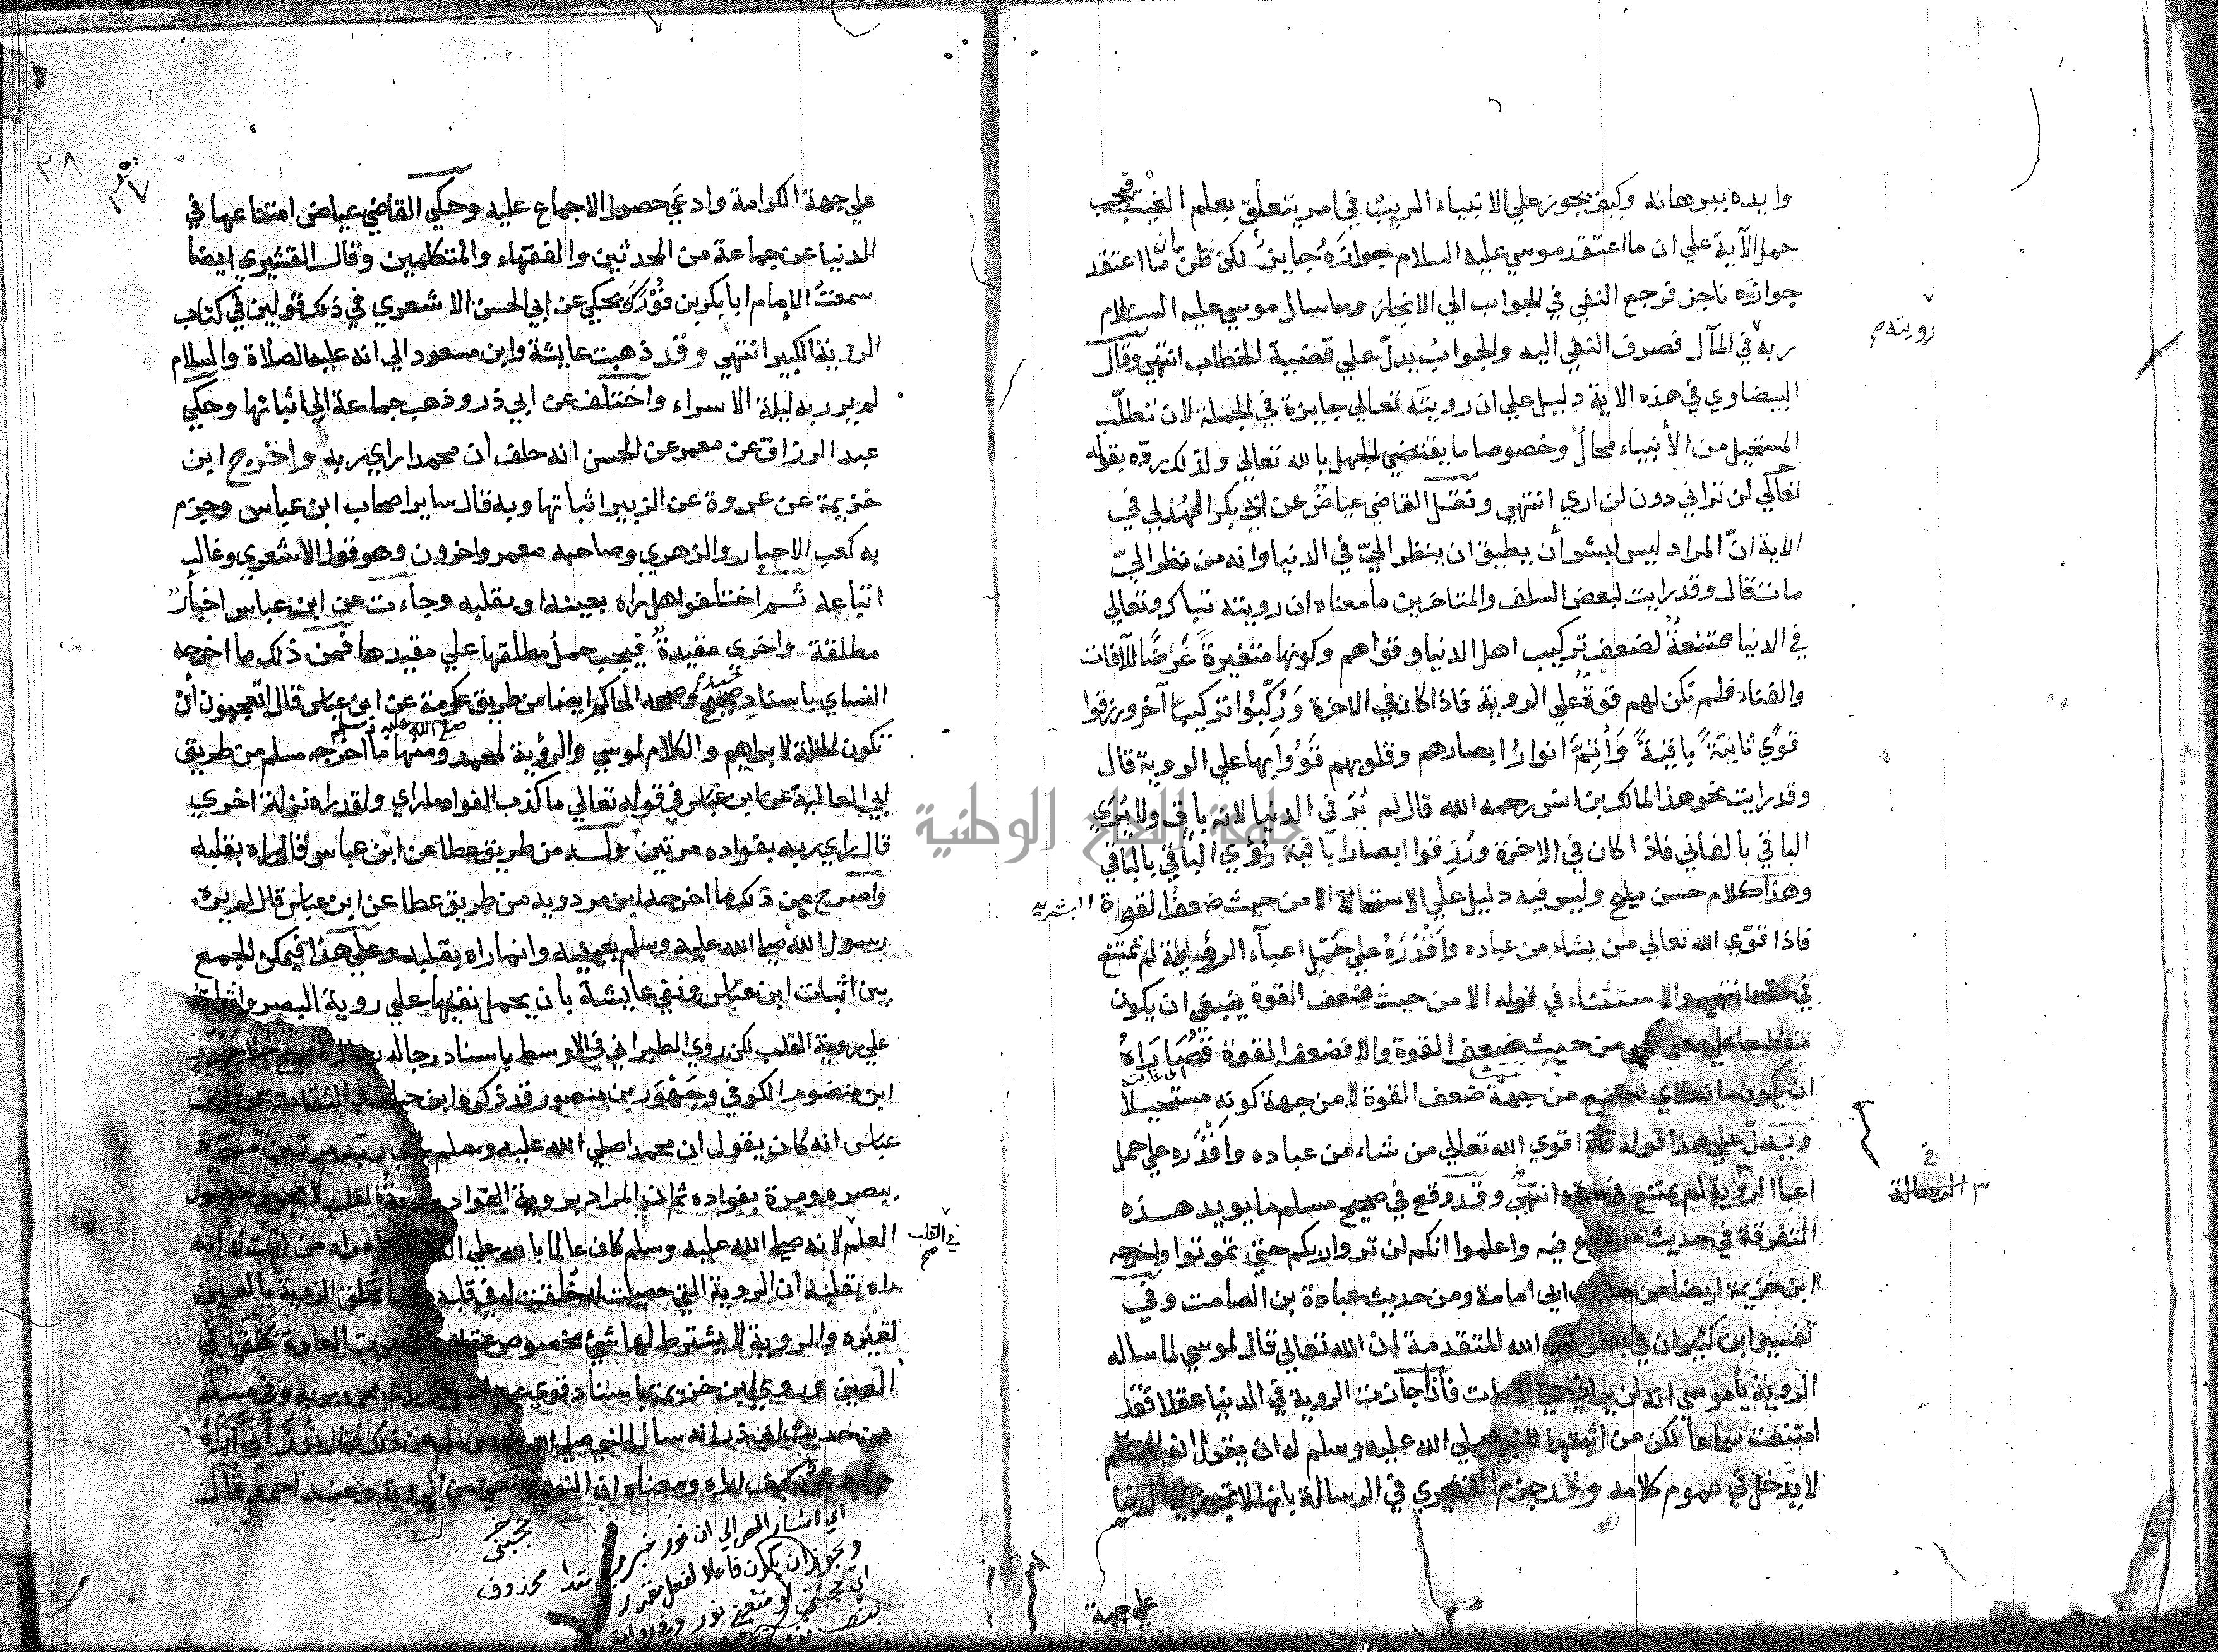 وايده ببرهانه وكيف يجوز علي الانبياء الريب في امر يتعلق بعلم الغيب فيجب
حمل الآية علي ان ما اعتقد موسي عليه السلام جوازه جايز لكن ظن بان ما اعتقد
جوازه ناجز فرجع النفي في الجواب الي الانجاز وماسال موسي عليه السلام
ربه في المآل فصرف النفي اليه والجواب يدل علي قضية الخطاب انتهي وقال
رويته م
البيضاوي في هذه الاية دليل علي ان رويته تعالي جايزة في الجملة لان تطلب
المستحيل من الأنبياء محال وخصوصا ما يقتضي الجهل بالله تعالي ولذلك رده بقوله
تعالي لن تراني دون لن اري انتهي ونقل القاضي عياض عن ابي بكر الهذلي في
الاية ان المراد ليس لبشر أن يطيق ان ينظر الي في الدنيا وانه من نظر الي
مات قال وقد رايت لبعض السلف والمتاخرين ما معناه ان رويته تبارك وتعالي
في الدنيا ممتنعة لضعف تركيب اهل الدنيا وقواهم وكونها متغيرة غرضا للآفات
والفناء فلم تكن لهم قوة علي الروية فاذا كان في الاخرة وركبوا تركيبا آخر ورزقوا
قوي ثابتة باقية وأتم انوار ابصارهم وقلوبهم قووا بها علي الروية قال
وقد رايت نحو هذا لمالك بن انس رحمه الله قال لم ير في الدنيا لانه باقي ولا يري
الباقي بالفاني فاذا كان في الاخرة ورزقوا ابصارا باقية رؤي الباقي بالباقي
وهذا كلام حسن مليح وليس فيه دليل علي الاستحالة الا من حيث ضعف القوة البشريه
فاذا قوي الله تعالي من يشاء من عباده واقدره علي حمل اعبآء الرؤية لم تمتنع
في حقه انتهي والاستثناء في قوله الا من حيث ضعف القوة ينبغي ان يكون
منقطعا علي معني من حيث ضعف القوة والا فضعف القوة قصاراه
ان يكون مانعا اي امتنع من جهة ضعف القوة لا من جهة كونه مستحيلا
ويدل علي هذا قوله فاذا قوي الله تعالي من شاء من عباده واقدره علي حمل
اعبا الروية لم يمتنع في حقه انتهي وقد وقع في صحيح مسلم ما يويد هذه
التفرقة في حديث مرفوع فيه واعلموا انكم لن تروا ربكم حتي تموتوا واخرجه
ابن خزيمة ايضا من حديث ابي أمامة ومن حديث عبادة بن الصامت وفي
تفسير ابن كثير ان في بعض كتب الله المتقدمة ان الله تعالي قال لموسي لما ساله
الروية يا موسي انه لن يراني حي الا مات فاذا جازت الروية في الدنيا عقلا فقد
امتنعت سماعا لكن من اثبتها للنبي صلي الله عليه وسلم له ان يقول ان المتكلم
لا يدخل في عموم كلامه وقد جزم القشيري في الرسالة بانها لا تجوز في الدنيا
علي جهة
جامعة النجاح الوطنية
٣٨
علي جهة الكرامة وادعي حصول الاجماع عليه وحكي القاضي عياض امتناعها في
الدنيا عن جماعة من المحدثين والفقهاء والمتكلمين وقال القشيري ايضا
سمعت الإمام ابا بكر بن فورك يحكي عن ابي الحسن الاشعري في ذلك قولين في كتاب
الروية الكبير انتهي وقد ذهبت عايشة وابن مسعود الي انه عليه الصلاة والسلام
لم ير ربه ليلة الاسراء واختلف عن ابي ذر وذهب جماعة الي اثباتها وحكي
عبد الرزاق عن معمر عن الحسن انه حلف أن محمدا راي ربه واخرج ابن
خزيمة عن عروة عن الزبير اثباتها وبه قال ساير اصحاب ابن عباس وجزم
به كعب الاحبار والزهري وصاحبه معمر واخرون وهو قول الاشعري وغالب
اتباعه ثم اختلفوا هل راه بعينه او بقلبه وجاءت عن ابن عباس اخبار
مطلقة واخري مقيدة فيجب حمل مطلقها علي مقيدها فمن ذلك ما اخرجه
النساي باسناد صحيح وصححه الحاكم ايضا من طريق عكرمة عن ابن عباس قال اتعجبون أن
تكون الخلة لابراهيم والكلام لموسي والرؤية لمحمد صلي الله عليه وسلم ومنها ما اخرجه مسلم من طريق
ابي العالية عن ابن عباس في قوله تعالي ما كذب الفواد ما راي ولقد راه نزلة اخري
قال راي ربه بفواده مرتين وله من طريق عطا عن ابن عباس قال راه بقلبه
واصرح من ذلك ما اخرجه ابن مردويه من طريق عطا عن ابن عباس قال لم يره
رسول الله صلي الله عليه وسلم بعينيه وانما راه بقلبه وعلي هذا فيمكن الجمع
بين اثبات ابن عباس ونفي عايشة بان يحمل نفيها علي روية البصر واثباته
علي روية القلب لكن روي الطبراني في الاوسط باسناد رجاله رجال الصحيح خلا جهور
ابن منصور الكوفي وجهور بن منصور قد ذكره ابن حبان في الثقات عن ابن
عباس انه كان يقول ان محمدا صلي الله عليه وسلم راي ربه مرتين مرة
ببصره ومرة بفواده ثم ان المراد بروية الفواد روية القلب لا مجرد حصول
العلم لانه صلي الله عليه وسلم كان عالما بالله علي الدوام بل مراد من اثبت له انه
في القلب
راه بقلبه ان الروية التي حصلت له خلقت له في قلبه كما تخلق الروية بالعين
لغيره والروية لا يشترط لها شئ مخصوص عقلا ولو جرت العادة بخلقها في
العين وروي ابن خزيمة باسناد قوي عن انس قال راي محمد ربه وفي مسلم
من حديث ابي ذر انه سال النبي صلي الله عليه وسلم عن ذلك فقال نور أني أراه
حجابه نور فكيف اراه ومعناه ان النور منعني من الروية وعند احمد قال
اي اشار المص الي ان نور خبر مبتدا محذوف
ويجوز ان يكون فاعلا لفعل مقدر